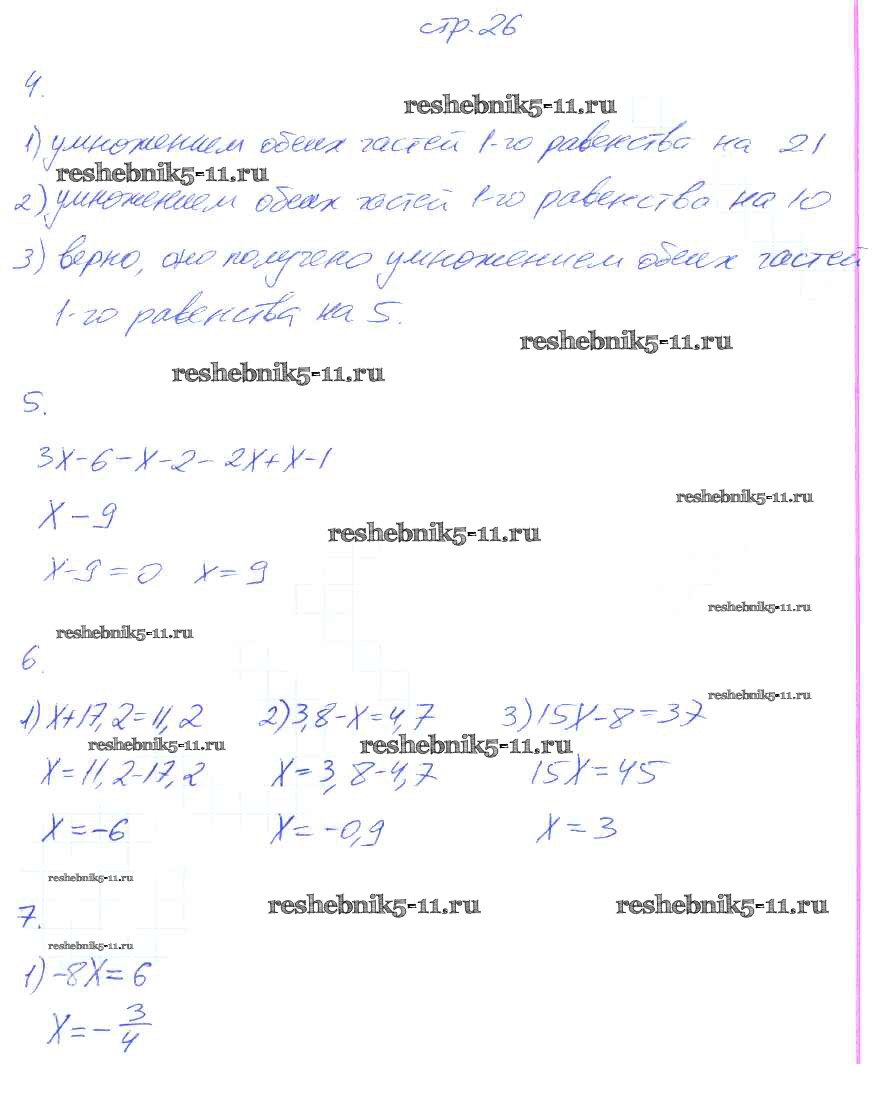 стр. 26
4.
reshebnik5-11.ru
1) умножением обеих частей 1-го равенства на 21
reshebnik5-11.ru
2) умножением обеих частей 1-го равенства на 10
3) верно, оно получено умножением обеих частей
1-го равенства на 5.
reshebnik5-11.ru
reshebnik5-11.ru
5.
3x-6-x-2-2x+x-1
reshebnik5-11.ru
x-9
reshebnik5-11.ru
x-9=0 x=9
reshebnik5-11.ru
reshebnik5-11.ru
6.
reshebnik5-11.ru
1) x+17,2=11,2 2) 3,8-x=4,7 3) 15x-8=37
reshebnik5-11.ru reshebnik5-11.ru
x=11,2-17,2 x=3,8-4,7 15x=45
x=-6 x=-0,9 x=3
reshebnik5-11.ru
7. reshebnik5-11.ru reshebnik5-11.ru
reshebnik5-11.ru
1) -8x=6
x=-3/4